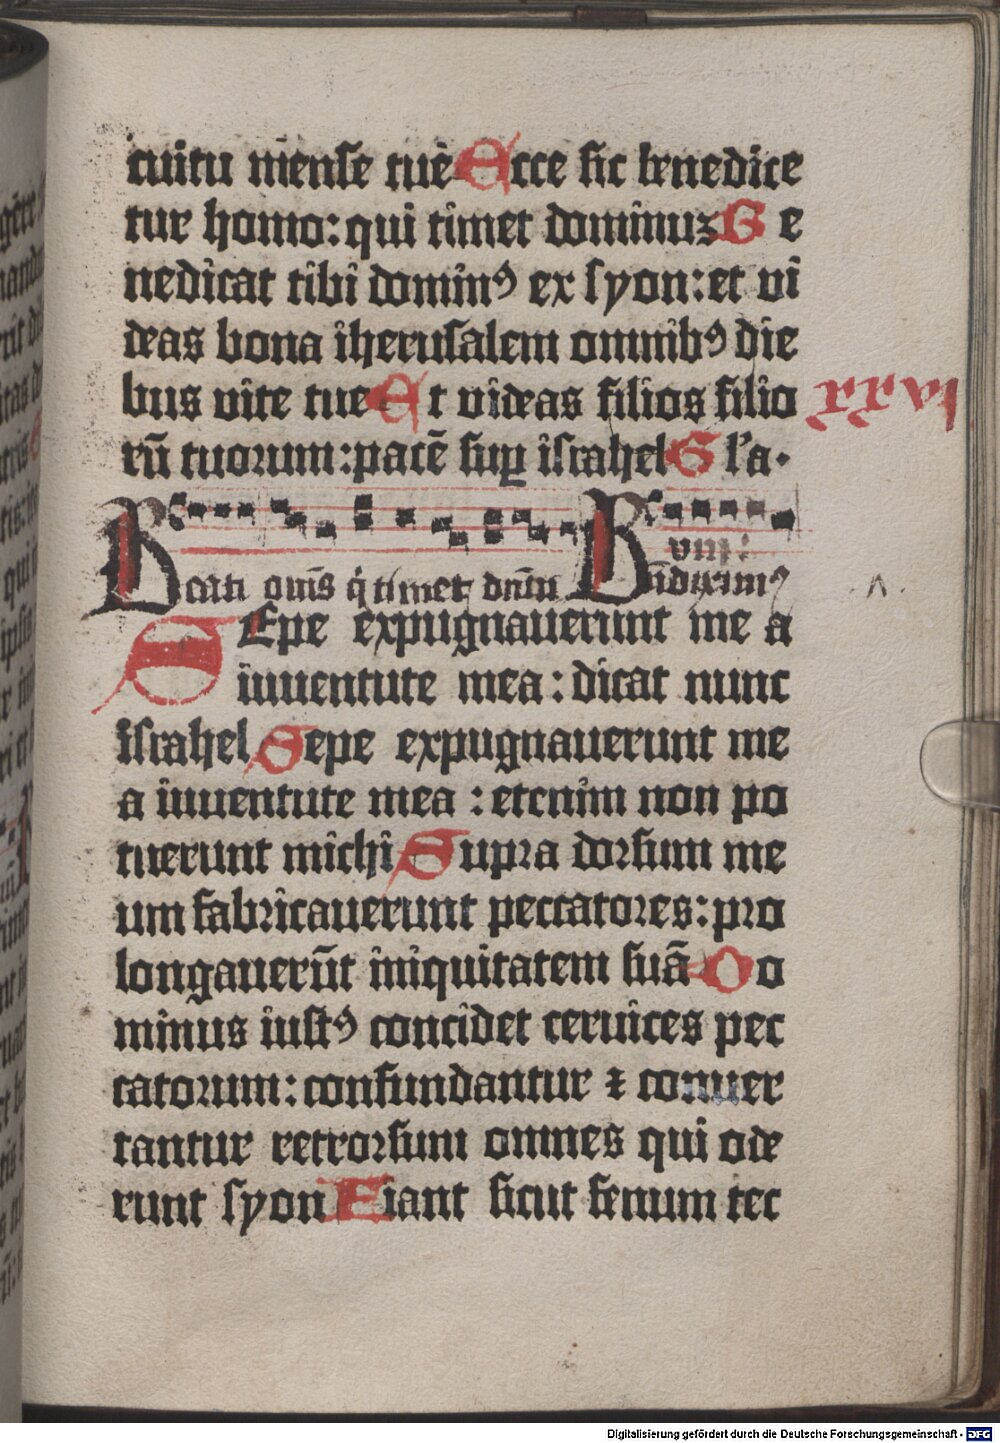 cuitu mense tue Ecce sic benedice
tur homo: qui timet dominuz B e
nedicat tibi dominꝰ ex syon: et vi
deas bona iherusalem omnibꝰ die
bus vite tue Et videas filios filio
rū tuorum: pacē suꝑ israhel G l'a.
Beati om̄s q̇ timet dn̄m
Bn̄diximꝰ
SEpe expugnauerunt me a
iuuentute mea: dicat nunc
israhel Sepe expugnauerunt me
a iuuentute mea: etenim non po
tuerunt michi Supra dorsum me
um fabricauerunt peccatores: pro
longauerūt iniquitatem suā Do
minus iustꝰ concidet ceruices pec
catorum: confundantur ⁊ conuer
tantur retrorsum omnes qui ode
runt syon Fiant sicut fenum tec
Digitalisierung gefördert durch die Deutsche Forschungsgemeinschaft - DFG